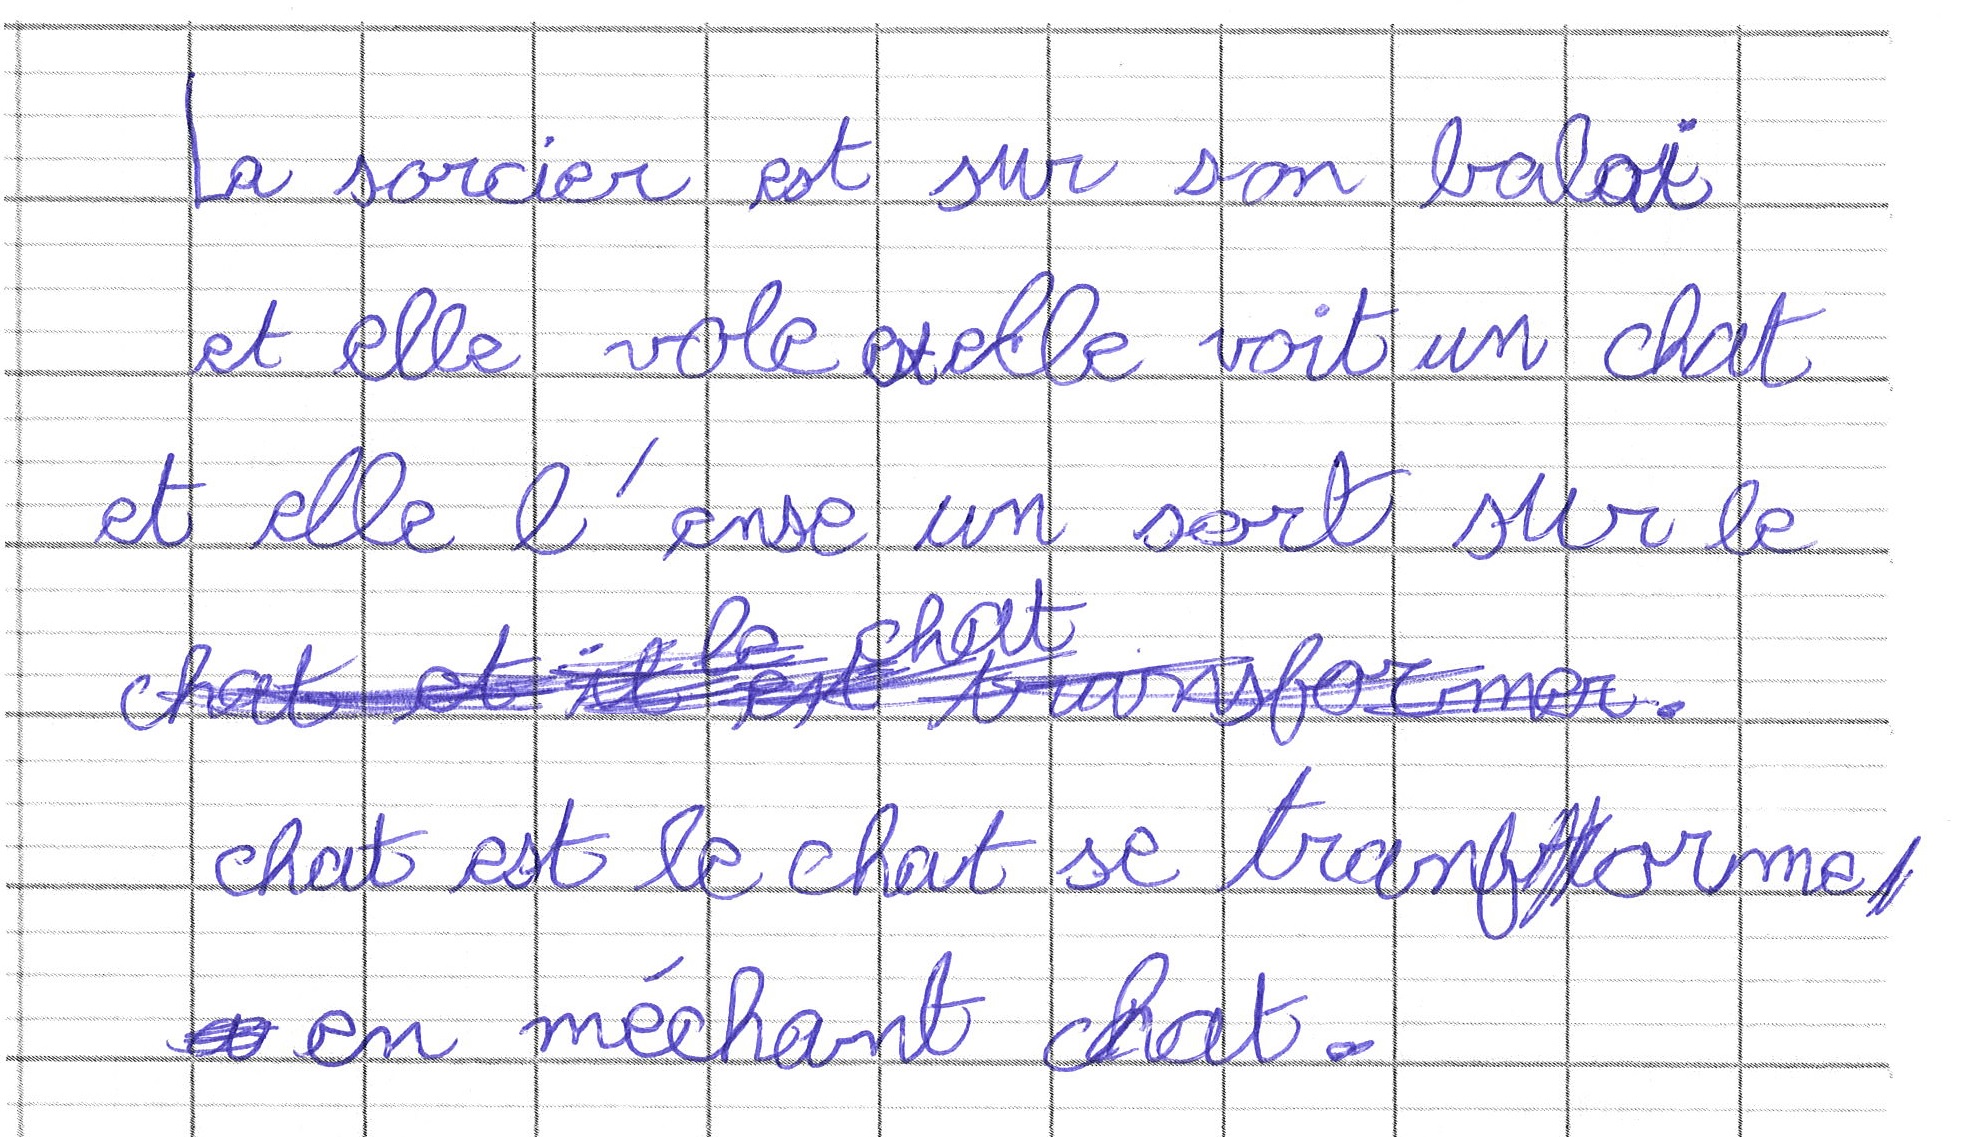 La sorcier est sur son balai
et elle vole et elle voit un chat
et elle l'ense un sort sur le
le chat
chat et il est transformer.
chat est le chat se tranforme,
en méchant chat.